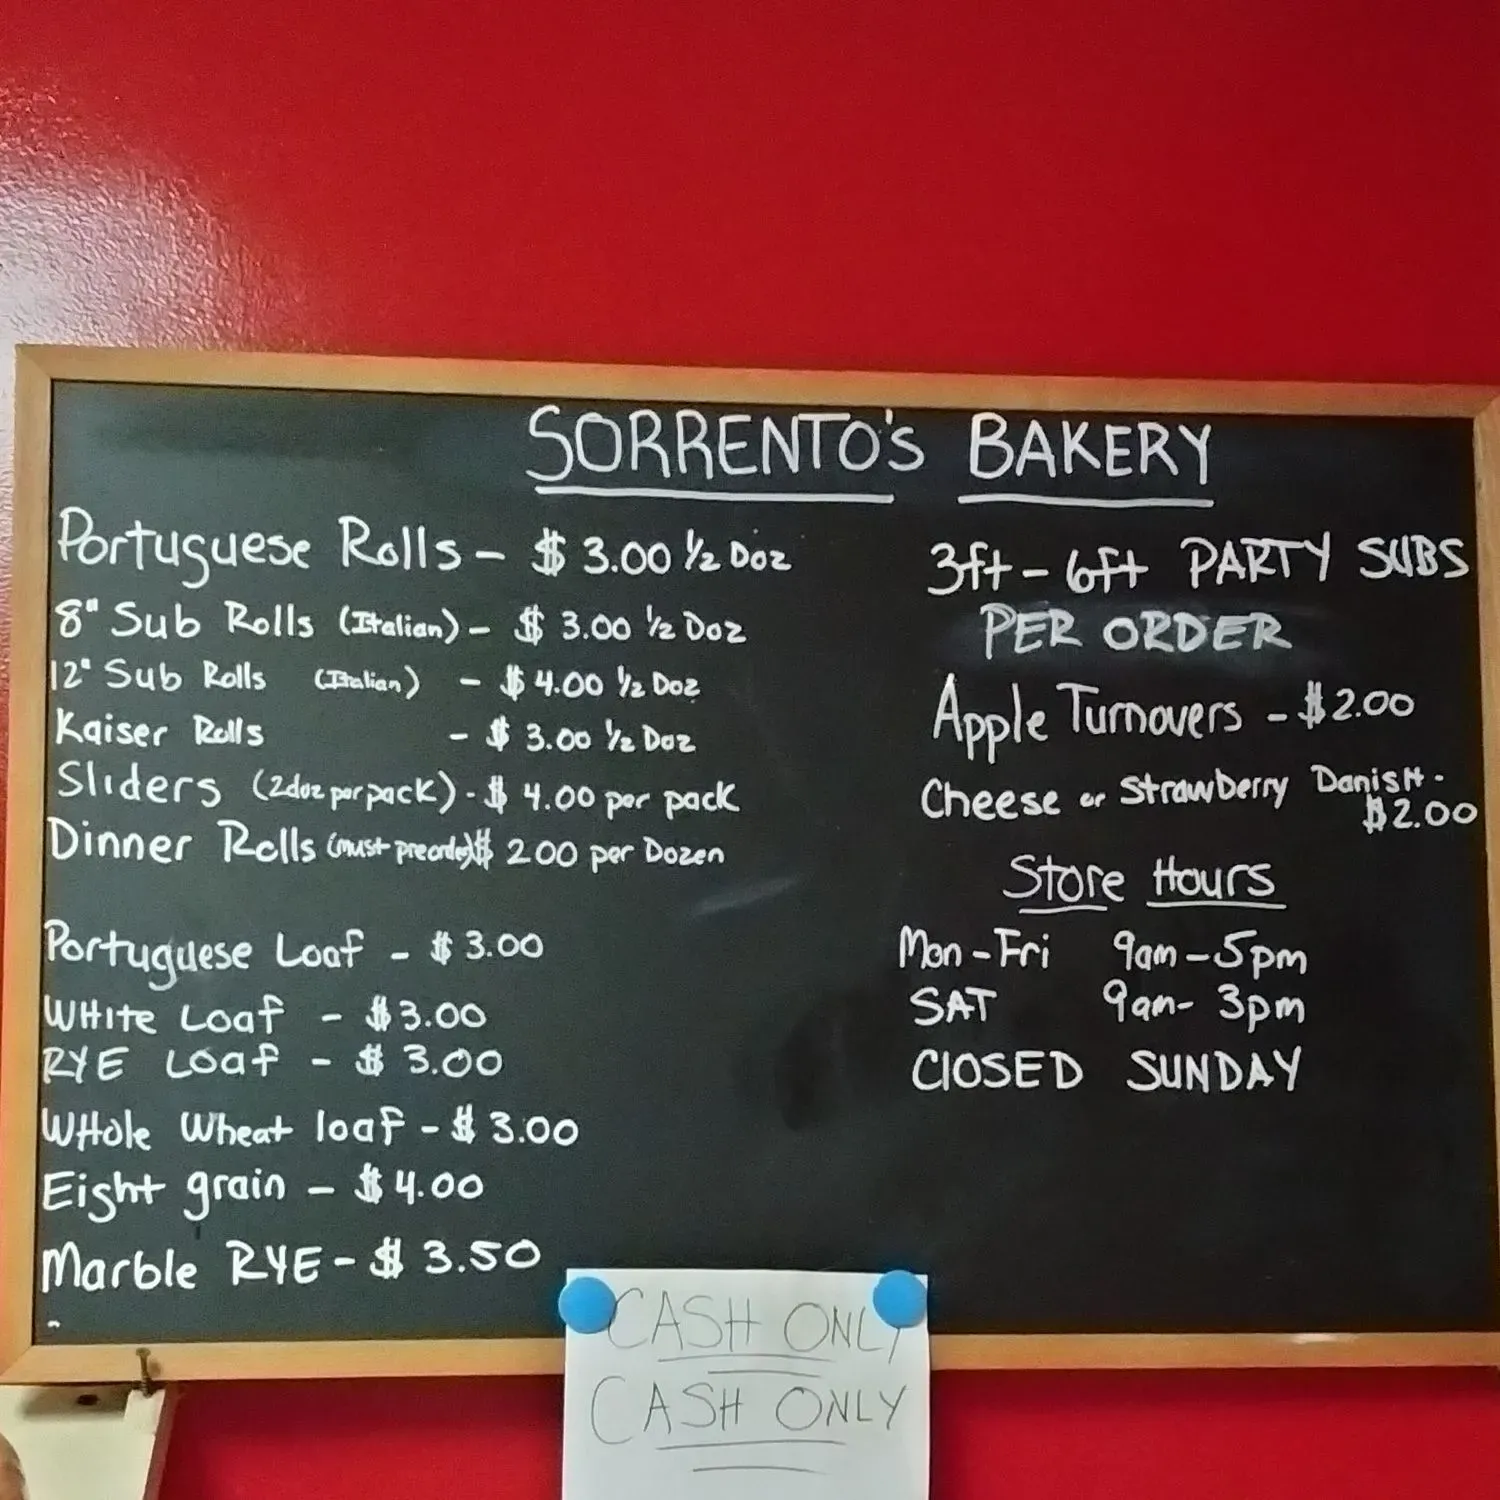 SORRENTO'S BAKERY
Portuguese Rolls - $ 3.00 1/2 Doz
8" Sub Rolls (Italian) - $ 3.00 1/2 Doz
12" Sub Rolls (Italian) - $ 4.00 1/2 Doz
Kaiser Rolls - $ 3.00 1/2 Doz
Sliders (2doz per pack) - $ 4.00 per pack
Dinner Rolls (must preorder) $ 200 per Dozen
Portuguese Loaf - $ 3.00
WHite Loaf - $ 3.00
RYE Loaf - $ 3.00
WHole Wheat loaf - $ 3.00
Eight grain - $ 4.00
Marble RYE - $ 3.50
3ft - 6ft PARTY SUBS
PER ORDER
Apple Turnovers - $2.00
Cheese or Strawberry DanisH -
$2.00
Store Hours
Mon - Fri 9am - 5pm
SAT 9am - 3pm
ClOSED SUNDAY
CASH ONLY
CASH ONLY